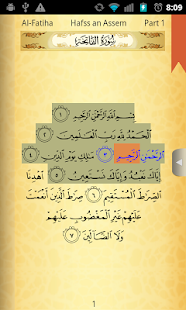 8:09
Al-Fatiha Hafss an Assem Part 1
سُورَةُ الْفَاتِحَةِ
بِسْمِ ٱللَّهِ ٱلرَّحْمَٰنِ ٱلرَّحِيمِ ١
ٱلْحَمْدُ لِلَّهِ رَبِّ ٱلْعَٰلَمِينَ ٢
ٱلرَّحْمَٰنِ ٱلرَّحِيمِ ٣ مَٰلِكِ يَوْمِ ٱلدِّينِ ٤
إِيَّاكَ نَعْبُدُ وَإِيَّاكَ نَسْتَعِينُ ٥ ٱهْدِنَا
ٱلصِّرَٰطَ ٱلْمُسْتَقِيمَ ٦ صِرَٰطَ ٱلَّذِينَ أَنْعَمْتَ
عَلَيْهِمْ غَيْرِ ٱلْمَغْضُوبِ عَلَيْهِمْ
وَلَا ٱلضَّآلِّينَ ٧
1